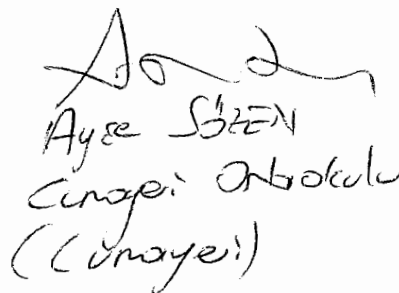 Ayşe SÖZEN
Cumayeri Ortaokulu
(Cumayeri)